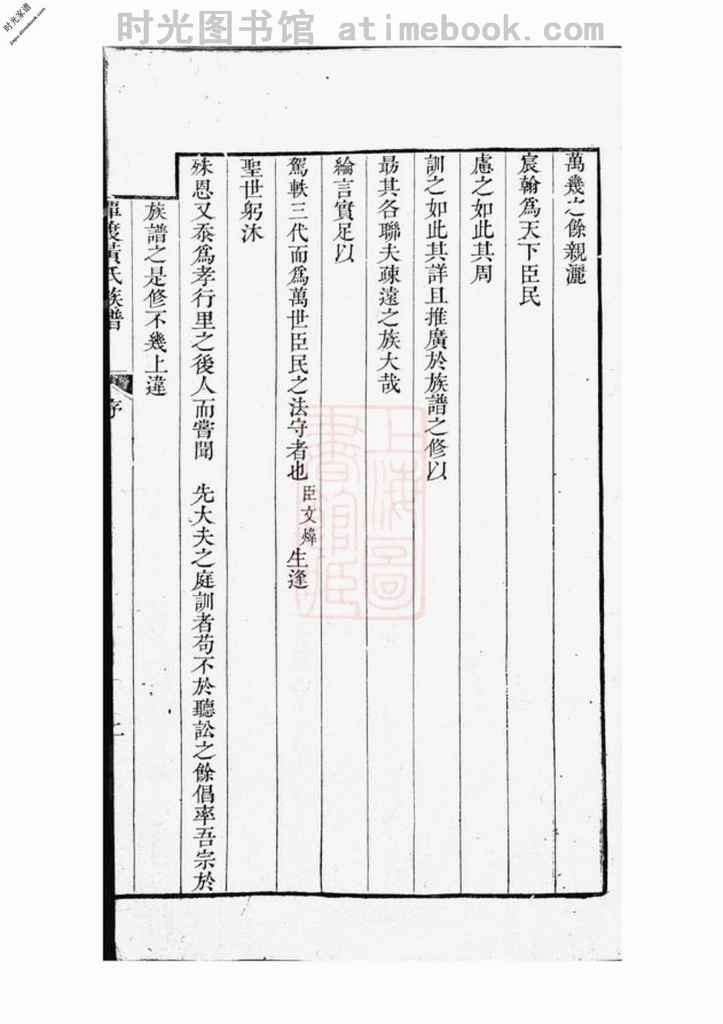 时光图书馆 atimebook.com
时光家谱
jiapu.atimebook.com
萬幾之餘親灑
宸翰爲天下臣民
慮之如此其周
訓之如此其詳且推廣於族譜之修以
勗其各聯夫疎遠之族大哉
綸言實足以
駕軼三代而爲萬世臣民之法守者也臣文煒生逢
聖世躬沐
殊恩又忝爲孝行里之後人而嘗聞 先大夫之庭訓者苟不於聽訟之餘倡率吾宗於
族譜之是修不幾上違
黃氏族譜 序
上海圖書館